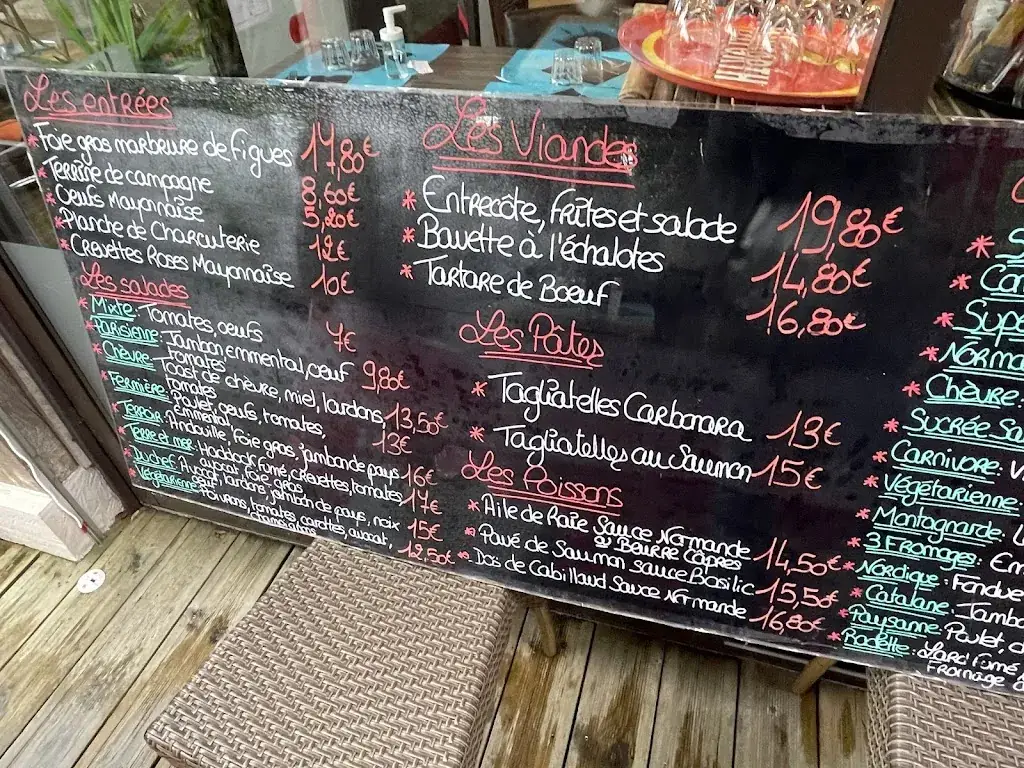 Les entrées
* Foie gras marbrure de figues 17,80€
* Terrine de campagne 8,60€
* Oeufs Mayonnaise 5,20€
* Planche de Charcuterie 12€
* Crevettes Roses Mayonnaise 10€
Les salades
* Mixte: Tomates, oeufs 7€
* Parisienne: Jambon, emmental, oeuf 9,80€
Tomates
* Chèvre: Toast de chèvre, miel, lardons, 13,50€
Tomates
* Fermière: Poulet, oeufs, tomates, 13€
emmental
* Terroir: Andouille, Foie gras, jambon de pays 16€
* Terre et mer: Haddock Fumé, crevettes, tomates 17€
avocat, foie gras
* Du chef: oeuf, lardons, jambon de pays, noix 15€
* Végétarienne: Poivrons, tomates, carottes, avocat, 12,50€
champignons
Les Viandes
* Entrecôte, frites et salade 19,80€
* Bavette à l'échalotes 14,80€
* Tartare de Boeuf 16,80€
Les Pâtes
* Tagliatelles Carbonara 13€
* Tagliatelles au Saumon 15€
Les Poissons
* Aile de Raie Sauce Normande
ou Beurre Câpres 14,50€
* Pavé de Saumon sauce Basilic 15,50€
* Dos de Cabillaud Sauce Normande 16,80€
* Supe
* Norma
* Chèvre:
* Sucrée Sa
* Carnivore: V
* Végétarienne:
* Montagnarde:
* 3 Fromages: Em
* Nordique: Fondue
* Catalane: Jambo
* Paysanne: Poulet,
* Raclette: Lard fumé
Fromage